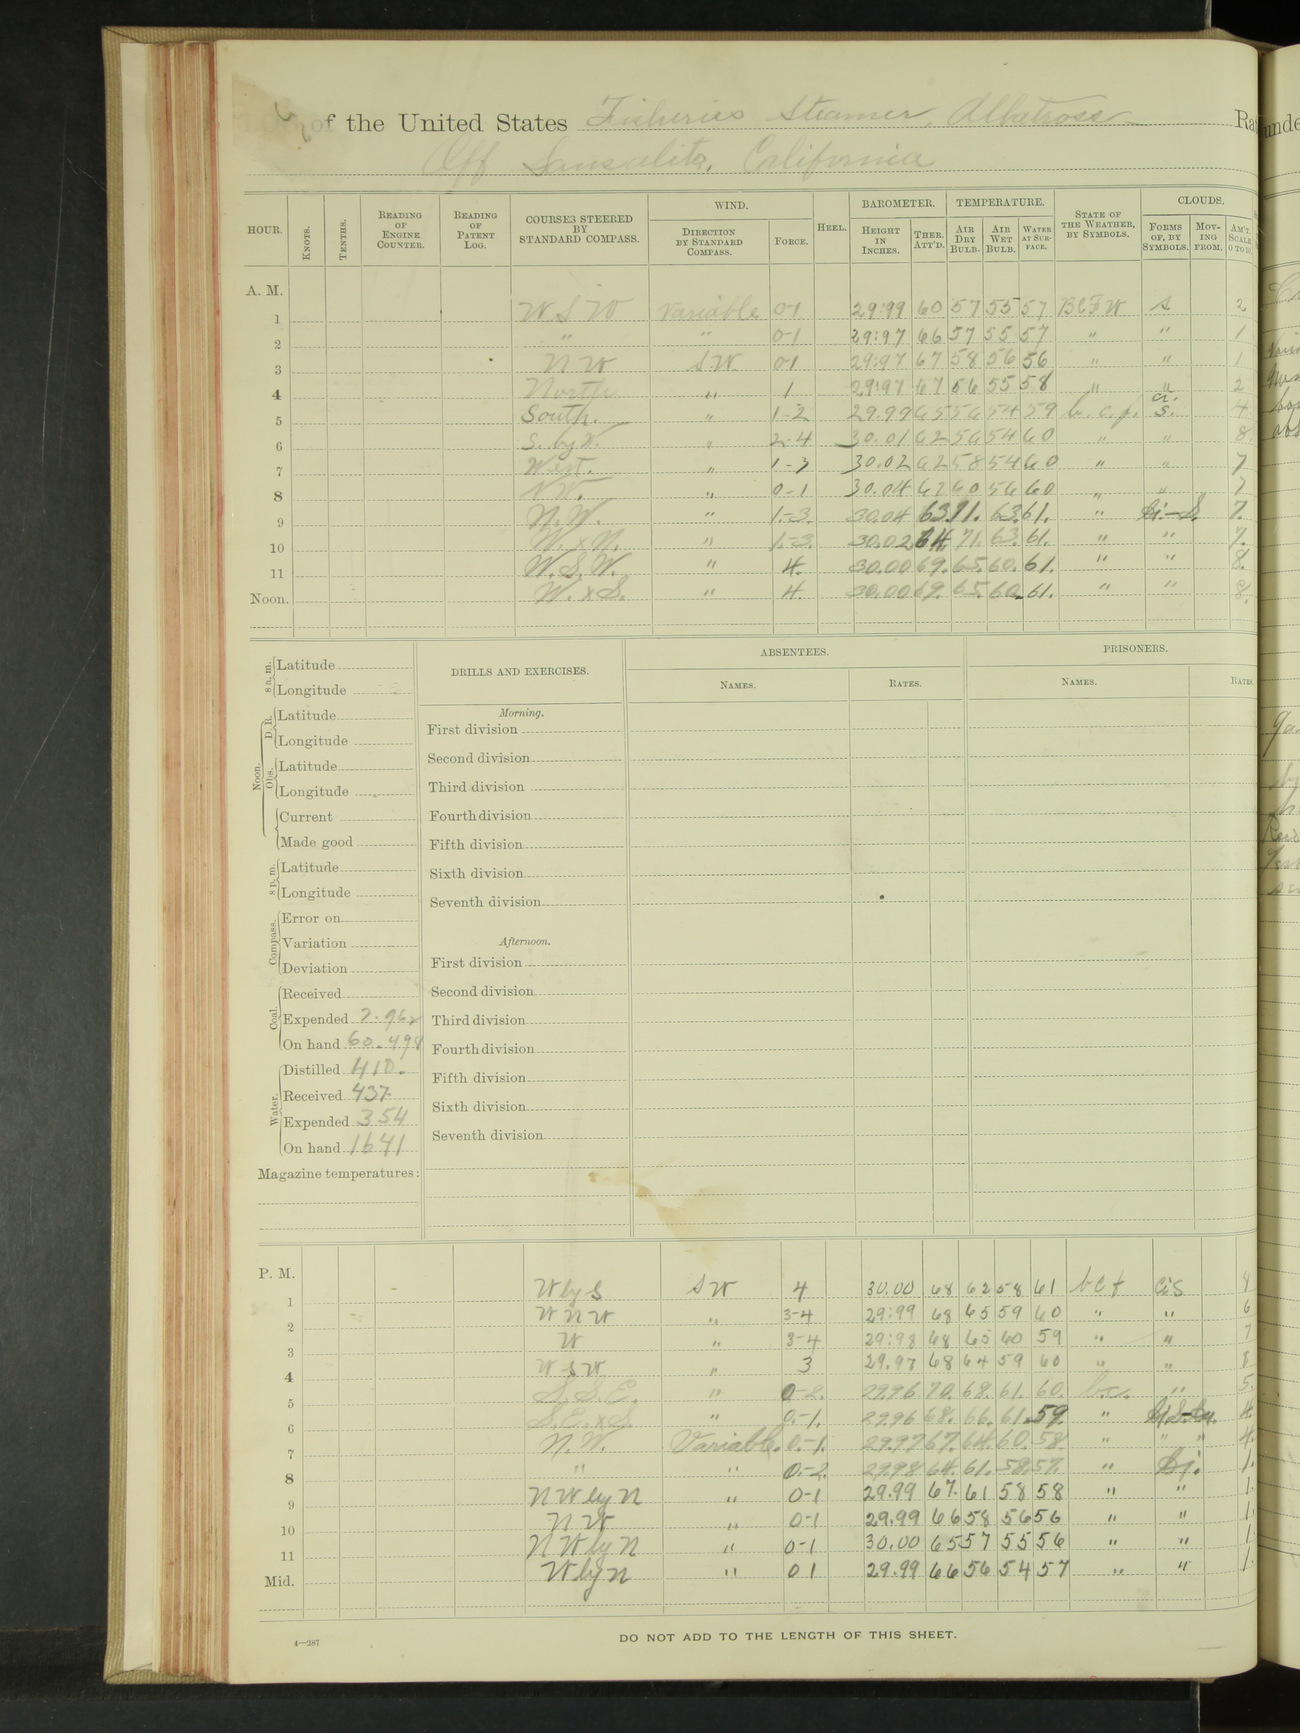 of the United States Fisheries Steamer, Albatross Ra
Off Sausalito, California
HOUR. KNOTS. TENTHS. READING OF ENGINE COUNTER. READING OF PATENT LOG. COURSES STEERED BY STANDARD COMPASS. WIND. DIRECTION BY STANDARD COMPASS. FORCE. HEEL. BAROMETER. HEIGHT IN INCHES. THER. ATT'D. TEMPERATURE. AIR DRY BULB. AIR WET BULB. WATER AT SURFACE. STATE OF THE WEATHER, BY SYMBOLS. CLOUDS. FORMS OF, BY SYMBOLS. MOVING FROM. AM'T. SCALE 0 TO 10.
A. M.
1 W S W Variable 0-1 29:99 60 57 55 57 BCFW S 2
2 " " 0-1 29:97 66 57 55 57 " " 1
3 N W S.W. 0-1 29:97 67 58 56 56 " " 1
4 North " 1 29:97 67 56 55 58 " " 2
5 South. " 1-2 29.99 65 56 54 59 b. c. f. ci. s. 4
6 S. by W. " 2-4 30.01 62 56 54 60 " " 8
7 West. " 1-3 30.02 62 58 54 60 " " 7
8 N.W. " 0-1 30.04 62 60 56 60 " " 7
9 N.W. " 1-3. 30.04 63. 71. 63. 61. " Ci.-S. 7.
10 W. x N. " 1-3. 30.02 64. 71. 63. 61. " " 7.
11 W.S.W. " 4. 30.00 69. 65. 60. 61. " " 8.
Noon. W. x S. " 4. 30.00 69. 65. 60. 61. " " 8.
8 a. m. Latitude
Longitude
Noon. D. R. Latitude
Longitude
Obs. Latitude
Longitude
Current
Made good
8 p. m. Latitude
Longitude
Compass. Error on
Variation
Deviation
Coal. Received
Expended 2.962
On hand 60.498
Water. Distilled 410.
Received 437.
Expended 354
On hand 1641
Magazine temperatures:
DRILLS AND EXERCISES.
Morning.
First division
Second division
Third division
Fourth division
Fifth division
Sixth division
Seventh division
Afternoon.
First division
Second division
Third division
Fourth division
Fifth division
Sixth division
Seventh division
ABSENTEES.
NAMES. RATES.
PRISONERS.
NAMES. RATES.
P. M.
1 W by S S W 4 30.00 68 62 58 61 bcf Ci S 8
2 W N W " 3-4 29:99 68 65 59 60 " " 6
3 W " 3-4 29:98 68 65 60 59 " " 7
4 W S W " 3 29.97 68 64 59 60 " " 8
5 S.S.E. " 0-2. 29.96 70. 68. 61. 60. b.c. " 5.
6 S.E. x S. " 0.-1. 29.96 68. 66. 61. 59. " 4.
7 N.W. Variable. 0.-1. 29.97 67. 64. 60. 58. " " " 4.
8 " " 0.-2. 29.98 64. 61. 58. 57. " Ci. 1.
9 N W by N " 0-1 29.99 67. 61 58 58 " " 1.
10 N W " 0-1 29.99 66 58 56 56 " " 1.
11 N W by N " 0-1 30.00 65 57 55 56 " " 1.
Mid. W by N " 0 1 29.99 66 56 54 57 " " 1.
4—287
DO NOT ADD TO THE LENGTH OF THIS SHEET.